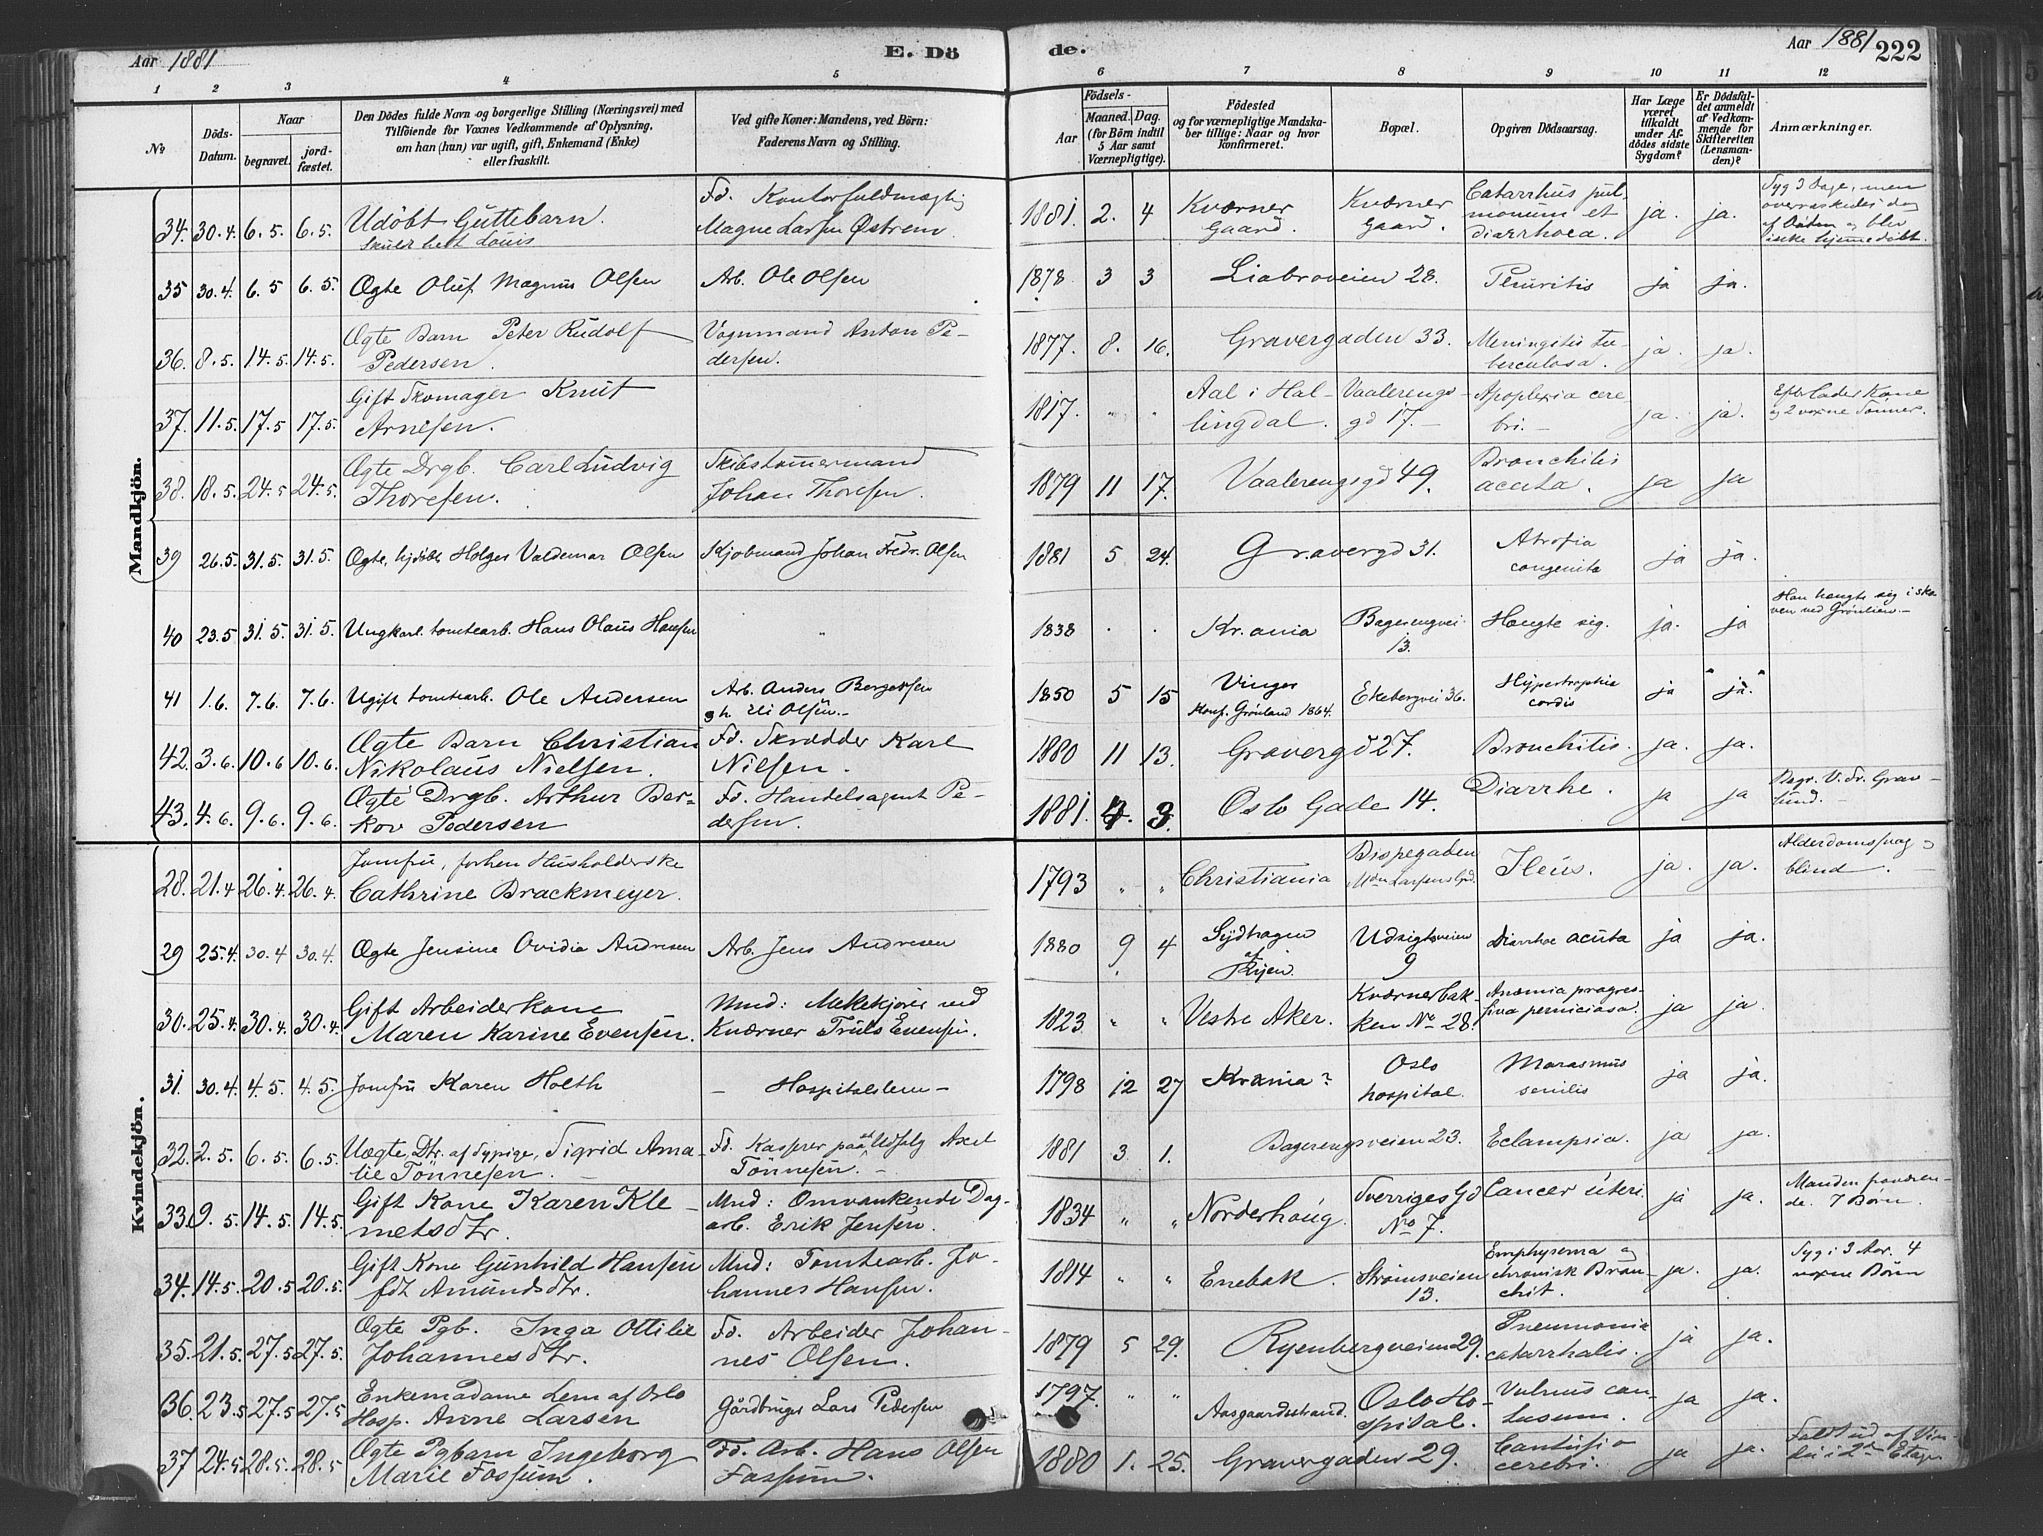 Aar 1881
E. Dö
de.
Aar 1881
222
1 2 3 4 5 6 7 8 9 10 11 12
No
Döds-Datum.
Naar
begravet.
jord-fæstet.
Den Dödes fulde Navn og borgerlige Stilling (Næringsvei) med
Tilföiende for Voxnes Vedkommende af Oplysning,
om han (hun) var ugift, gift, Enkemand (Enke)
eller fraskilt.
Ved gifte Koner: Mandens, ved Börn:
Faderens Navn og Stilling.
Födsels-
Aar
Maaned.
Dag.
(for Börn indtil
5 Aar samt
Værnepligtige).
Födested
og for værnepligtige Mandska-
ber tillige: Naar og hvor
konfirmeret.
Bopæl.
Opgiven Dödsaarsag.
Har Læge
været
tilkaldt
under Af-
dödes sidste
Sygdom?
Er Dödsfal-
det anmeldt
af Vedkom-
mende for
Skifteretten
(Lensman-
den)?
Anmærkninger.
Mandkjön.
34. 30.4. 6.5. 6.5. Udöbt Guttebarn. Fd. Kontorfuldmægtig 1881 2. 4 Kværner Kværner Catarrhus pul- ja. ja. Syg 3 Dage, men
skulde hett Louis Magne Larsen Østrem. Gaard. Gaard. monum et overraskedes dog
diarrhoea. af Døden og blev
ikke hjemmedöbt.
35 30.4. 6.5 6.5. Ægte Oluf Magnus Olsen Arb. Ole Olsen 1878 3 3 Liabroveien 28. Pleuritis ja ja.
36. 8.5. 14.5 14.5. Ægte Barn Peter Rudolf Vognmand Anton Pe- 1877. 8. 16. Gravergaden 33. Meningitis tu- ja. ja.
Pedersen. dersen. berculosa.
37. 11.5. 17.5 17.5. Gift Skomager Knut 1817. " " Aal i Hal- Vaalerengs- Apoplexia cere ja. ja. Efterlader Kone
Arnesen. lingdal. gd 17. bri. og 2 voxne Sönner.
38. 18.5. 24.5 24.5. Ægte Drgb. Carl Ludvig Skibstømmermand 1879 11 17. Vaalerengsgd 49. Bronchitis ja ja
Thoresen. Johan Thoresen. acuta.
39 26.5. 31.5. 31.5. Ægte, hjdöbt Holger Valdemar Olsen Kjøbmand Johan Fredr. Olsen 1881 5 24. Gravergd 31. Atrofia ja ja.
congenita
40 23.5 31.5. 31.5. Ungkarl. tomtearb. Hans Olaus Hansen " 1838 . . Kr.ania Bagerengvei Hængte sig. ja. ja Han hængte sig i sko
13. ven ved Grønlien.
41 1.6. 7.6. 7.6. Ugift tomtearb. Ole Andersen Arb. Anders Bergersen 1850 5 15 Vinger Ekebergvei 36. Hypertrophia ja "ja."
gh. Eli Olsen. Konf. Grönland 1864. cordis
42. 3.6. 10.6 10.6. Ægte Barn Christian Fd. Skrædder Karl 1880 11 13. Gravergd 27. Bronchitis. ja. ja.
Nikolaus Nielsen. Nielsen.
43. 4.6. 9.6. 9.6. Ægte Drgb. Arthur Ber- Fd. Handelsagent Pe- 1881. 4. 3. Oslo Gade 14. Diarrhe. ja ja Begr. V. Fr. Grav-
kov Pedersen dersen. lund.
Kvindekjön.
28. 21.4 26.4. 26.4. Jomfru, forhen Husholderske 1793 " " Christiania Bispegaden Ileus. ja. ja. Alderdomssvag og
Cathrine Brackmeyer. Mdm Larsens Gd. blind.
29 25.4. 30.4 30.4. Ægte Jensine Ovidia Andresen Arb. Jens Andresen 1880 9 4 Sydhagen Udsigtsveien Diarrhoe acuta ja ja.
af 9
Ryen.
30. 25.4. 30.4. 30.4. Gift Arbeiderkone Mnd: Melkekjører ved 1823 " " Vestre Aker. Kværnerbak- Anæmia progres- ja ja.
Maren Karine Evensen. Kværner Truls Evensen. ken No 28. siva perniciosa.
31. 30.4. 4.5 4.5. Jomfru Karen Holth – Hospitalslem – 1798 12 27 Krænia? Oslo Marasmus ja ja.
hospital. senilis
32. 2.5. 6.5. 6.5. Uægte Dtr. af Sypige, Sigrid Ama- Fd. Kasserer paa et Udsalg Axel 1881 3. 1. Bagerengsveien 23. Eclampsia. ja ja.
lie Tönnesen. Tönnesen.
33. 9.5. 14.5. 14.5. Gift Kone Karen Kle- Mnd: Omvankende Dag- 1834 " " Norderhoug. Sverriges Gd Cancer uteri. ja ja. Manden fraværen-
metsdtr. arb. Erik Jensen. No 7. de. 7 Børn.
34. 14.5. 20.5 20.5. Gift Kone Gunhild Hansen Mnd: Tomtearb. Jo- 1814 " " Enebak. Strömsveien Emphysema og ja. ja. Syg i 3 Aar. 4
fdt Amundsdtr. hannes Hansen. 13. chronisk Bron- voxne Børn
chit.
35. 21.5. 27.5 27.5. Ægte Pgb. Inga Ottilie Fd. Arbeider Johan- 1879 5 29. Ryenbergveien 29. Pneumonia ja ja.
Johannesdtr. nes Olsen. catarrhalis.
36. 23.5 27.5 27.5 Enkemadame Lem af Oslo Gårdbruger Lars Pedersen 1797. " " Aasgaardsstrand. Oslo Ho- Vulnus con- ja ja.
Hosp. Anne Larsen spital. tusum.
37 24.5 28.5. 28.5 Ægte Pgbarn Ingeborg Fd. Arb. Hans Olsen 1880 1. 25. Gravergaden 29. Contusio ja ja. Faldt ud af Vin-
Marie Fossum. Fossum. cerebri. duet i 2den Etage